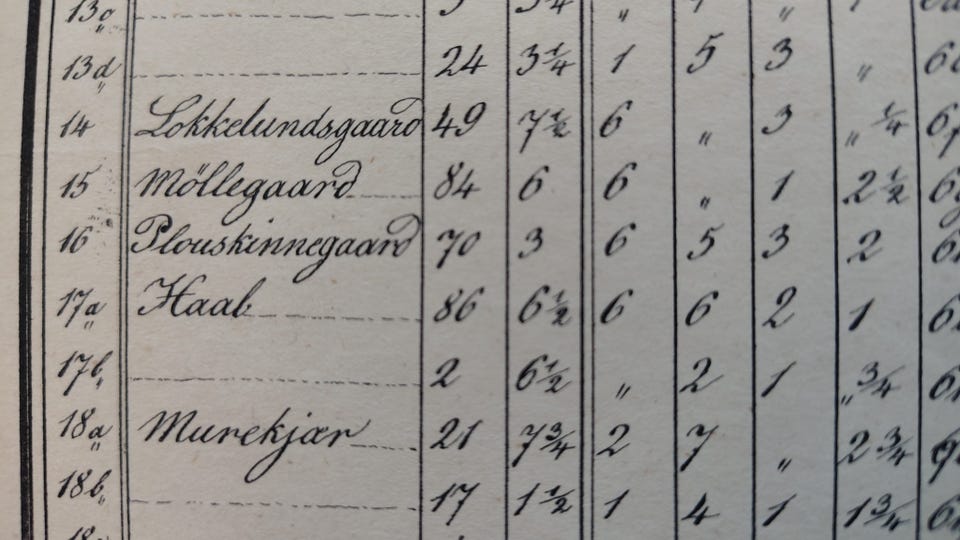 13d 24 3 1/4 1 5 3 „
14 Lokkelundsgaard 49 7 1/2 6 „ 3 „ 1/4
15 Møllegaard 84 6 6 „ 1 2 1/2
16 Plouskinnegaard 70 3 6 5 3 2
17a Haab 86 6 1/2 6 6 2 1
17b 2 6 1/2 „ 2 1 „ 3/4
18a Murekjær 21 7 3/4 2 7 „ 2 3/4
18b 17 1 1/2 1 4 1 1 3/4